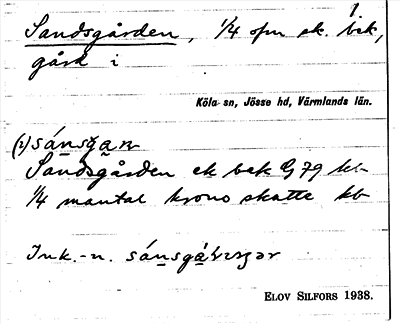 1.
Sandsgården, 1/4 spm ek. bek,
gård i
Köla sn, Jösse hd, Värmlands län.
(2) sánsgan
Sandsgården ek bek G 79 kb
1/4 mantal krono skatte kb
Ink.-n. sánsgá
ELOV SILFORS 1938.